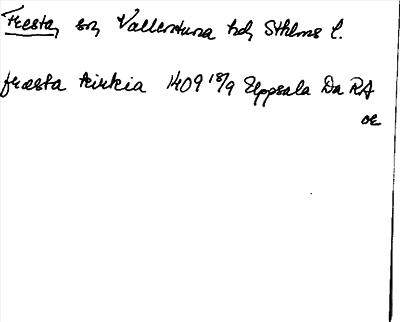 Fresta, sn, Vallentuna hd, Sthlms l.
fræsta kirkia 1409 18/9 Uppsala Da RA
or